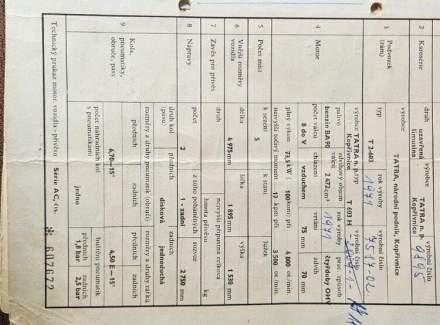 2 Karoserie
druh
uzavřená
limusina
výrobce
TATRA n. p.
Kopřivnice
výrobní číslo
9895
3 Podvozek
(rám)
výrobce
TATRA, národní podnik, Kopřivnice
typ
T 2-603
rok výroby
1971
výrobní číslo
4 Motor
výrobce
TATRA n. p.
Kopřivnice
typ
T 603 H
výrobní číslo
palivo
benzin BA 90
zdvihový objem
2 472 cm³
rok výroby
1971
prac. způsob
čtyřdobý OHV
počet válců
8 do V
chlazení
vzduchem
vrtání
75 mm
zdvih
70 mm
plný výkon
při
4 800 ot./min.
největší točivý moment
17 kpm při
3 500 ot./min.
5 Počet míst
k sezení
5
k stání
lůžek
6 Vnější rozměry
vozidla
délka
4 975 mm
šířka
1 895 mm
výška
1 530 mm
7 Závěs pro přívěs
druh
nejvyšší přípustná celková
hmota přívěsu
kg
8 Nápravy
počet
2
z toho poháněných
1 - zadní
rozvor
2 750 mm
9 Kola,
pneumatiky,
obruče, pásy
druh kol
(pásu)
předních
disková
zadních
jednoduchá
rozměry a druhy pneumatik (obručí)
předních
6,70—15"
zadních
rozměry a druhy ráfků
předních
4,50 E — 15"
zadních
počet náhradních kol
s pneumatikami
jedno
huštění pneumatik
předních
1,8 bar
zadních
2,5 bar
Technický průkaz motor. vozidla - přívěsu
Série AC, čís.
607672